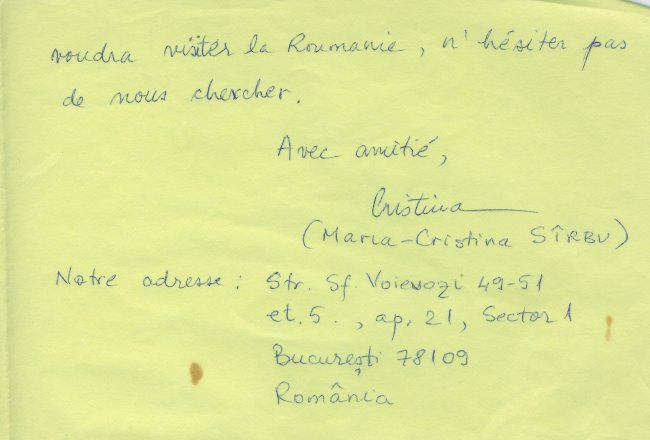 voudra visiter la Roumanie, n'hésiter pas
de nous chercher.
Avec amitié,
Cristina
(Maria-Cristina SÎRBU)
Notre adresse: Str. Sf. Voievozi 49-51
et. 5., ap. 21, Sector 1
București 78109
România